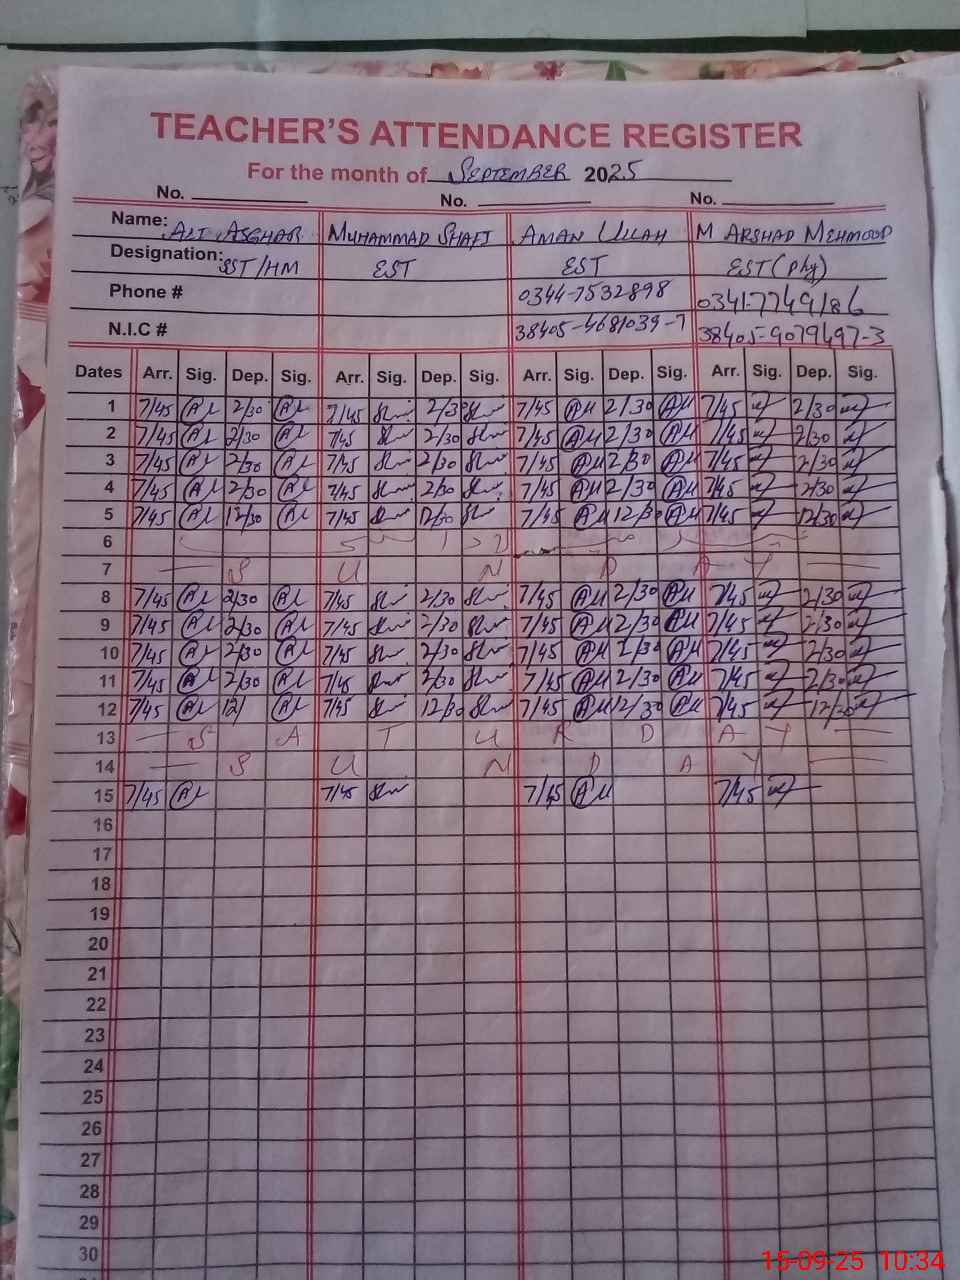 TEACHER'S ATTENDANCE REGISTER
For the month of SEPTEMBER 2025
No. No. No.
Name: ALI ASGHAR MUHAMMAD SHAFI AMAN ULLAH M ARSHAD MEHMOOD
Designation: SST/HM EST EST EST (Phy)
Phone # 0344-7532898 0341-7749186
N.I.C # 38405-4681039-7 38405-9079497-3
Dates Arr. Sig. Dep. Sig. Arr. Sig. Dep. Sig. Arr. Sig. Dep. Sig. Arr. Sig. Dep. Sig.
1 7/45 2/30 7/45 2/30 7/45 2/30 7/45 2/30
2 7/45 2/30 7/45 2/30 7/45 2/30 7/45 2/30
3 7/45 2/30 7/45 2/30 7/45 2/30 7/45 2/30
4 7/45 2/30 7/45 2/30 7/45 2/30 7/45 2/30
5 7/45 12/30 7/45 12/30 7/45 12/30 7/45 12/30
6
7 S U N D A Y
8 7/45 2/30 7/45 2/30 7/45 2/30 7/45 2/30
9 7/45 2/30 7/45 2/30 7/45 2/30 7/45 2/30
10 7/45 2/30 7/45 2/30 7/45 2/30 7/45 2/30
11 7/45 2/30 7/45 2/30 7/45 2/30 7/45 2/30
12 7/45 12/ 7/45 12/30 7/45 12/30 7/45 12/30
13 S A T U R D A Y
14 S U N D A Y
15 7/45 7/45 7/45 7/45
16
17
18
19
20
21
22
23
24
25
26
27
28
29
30
15-09-25 10:34